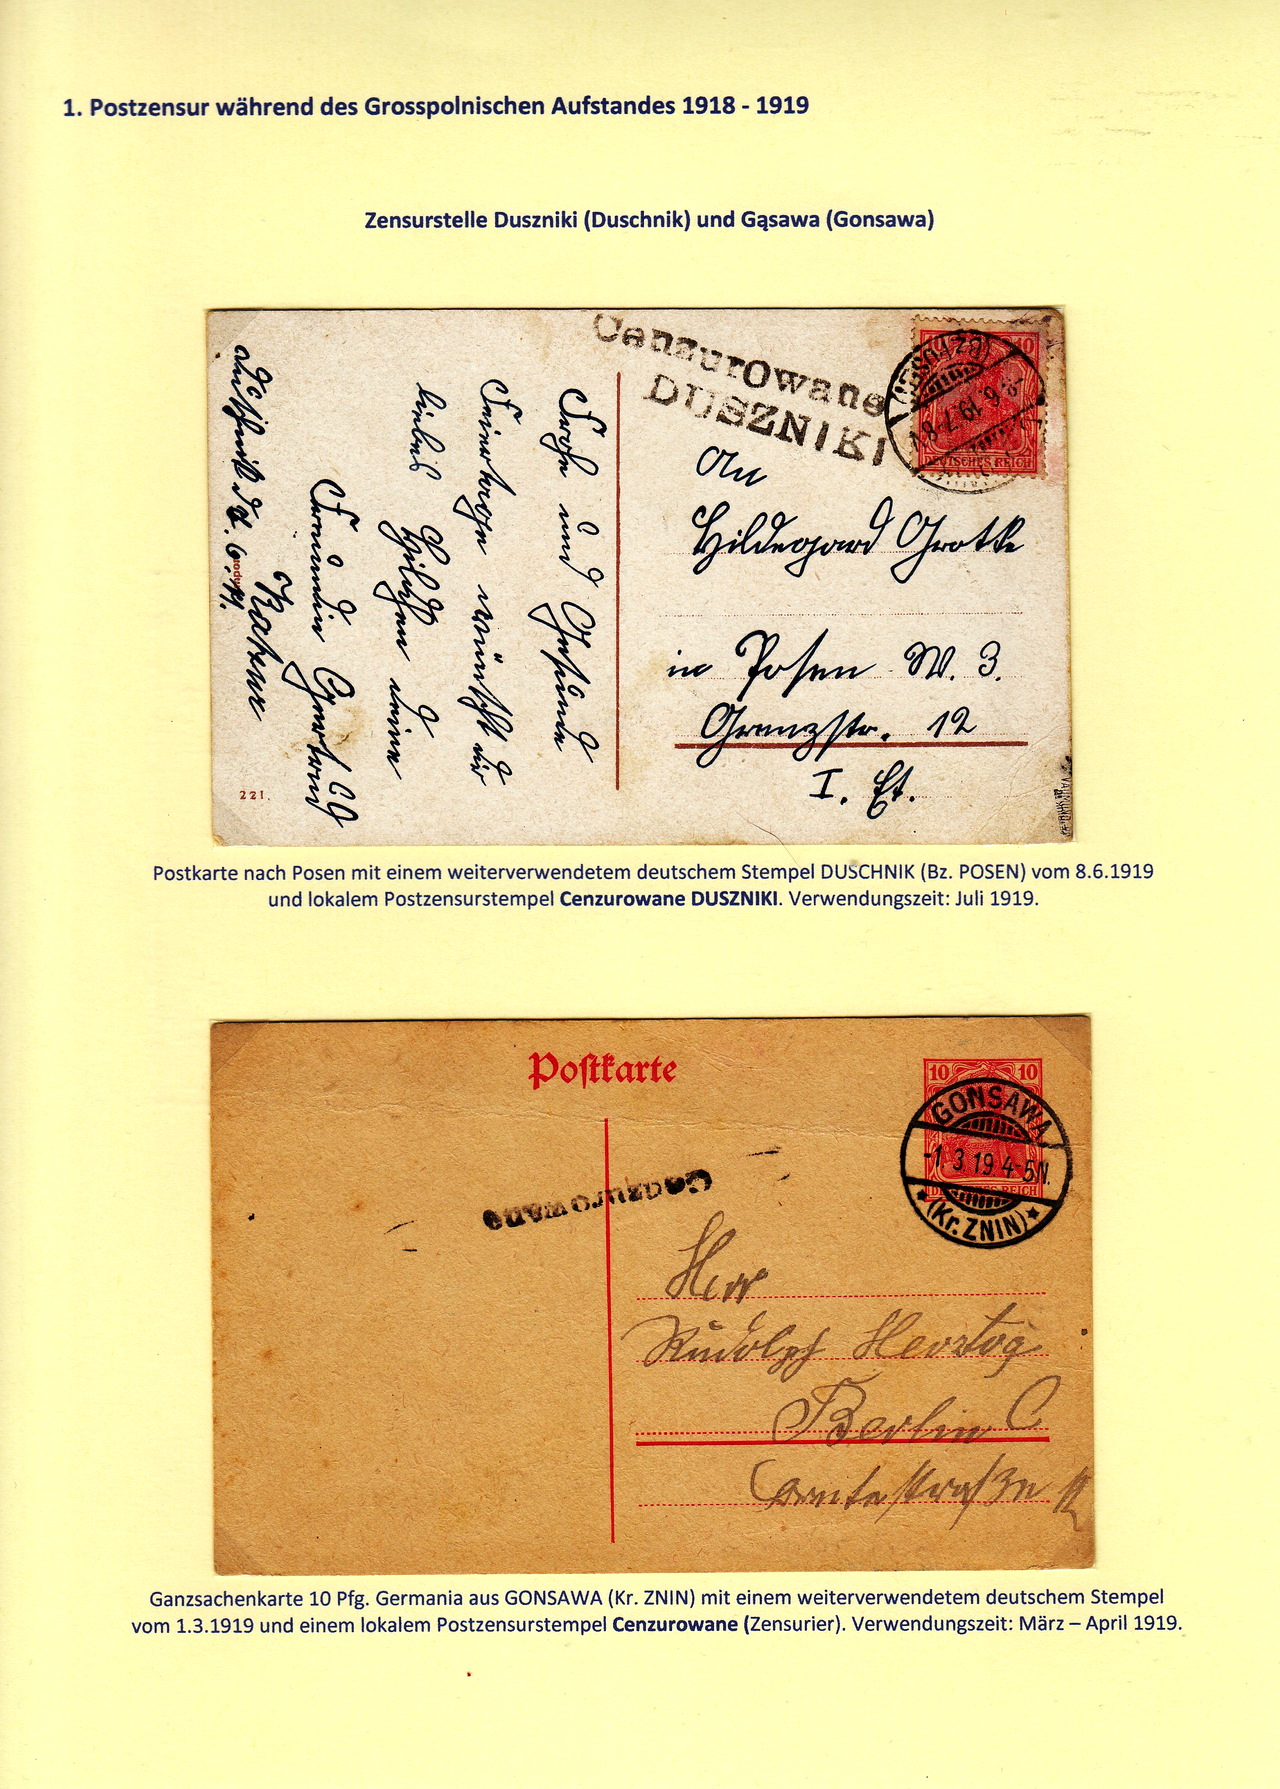 1. Postzensur während des Grosspolnischen Aufstandes 1918 - 1919
Zensurstelle Duszniki (Duschnik) und Gąsawa (Gonsawa)
Cenzurowane
DUSZNIKI
10
-8.6.19.7-8V
DEUTSCHES REICH
An
Hildegard Grottke
in Posen W. 3.
Grenzstr. 12
I. Et.
Frohe und Gesunde
Feiertage wünscht dir
liebes Hildchen deine
Freundin Gertrud
221.
Postkarte nach Posen mit einem weiterverwendetem deutschem Stempel DUSCHNIK (Bz. POSEN) vom 8.6.1919
und lokalem Postzensurstempel Cenzurowane DUSZNIKI. Verwendungszeit: Juli 1919.
Postkarte
10 10
GONSAWA
-1.3.19.4-5N.
DEUTSCHES REICH
* (Kr. ZNIN) *
Cenzurowane
Herr
Rudolph Herzog
Berlin C
Ganzsachenkarte 10 Pfg. Germania aus GONSAWA (Kr. ZNIN) mit einem weiterverwendetem deutschem Stempel
vom 1.3.1919 und einem lokalem Postzensurstempel Cenzurowane (Zensurier). Verwendungszeit: März – April 1919.